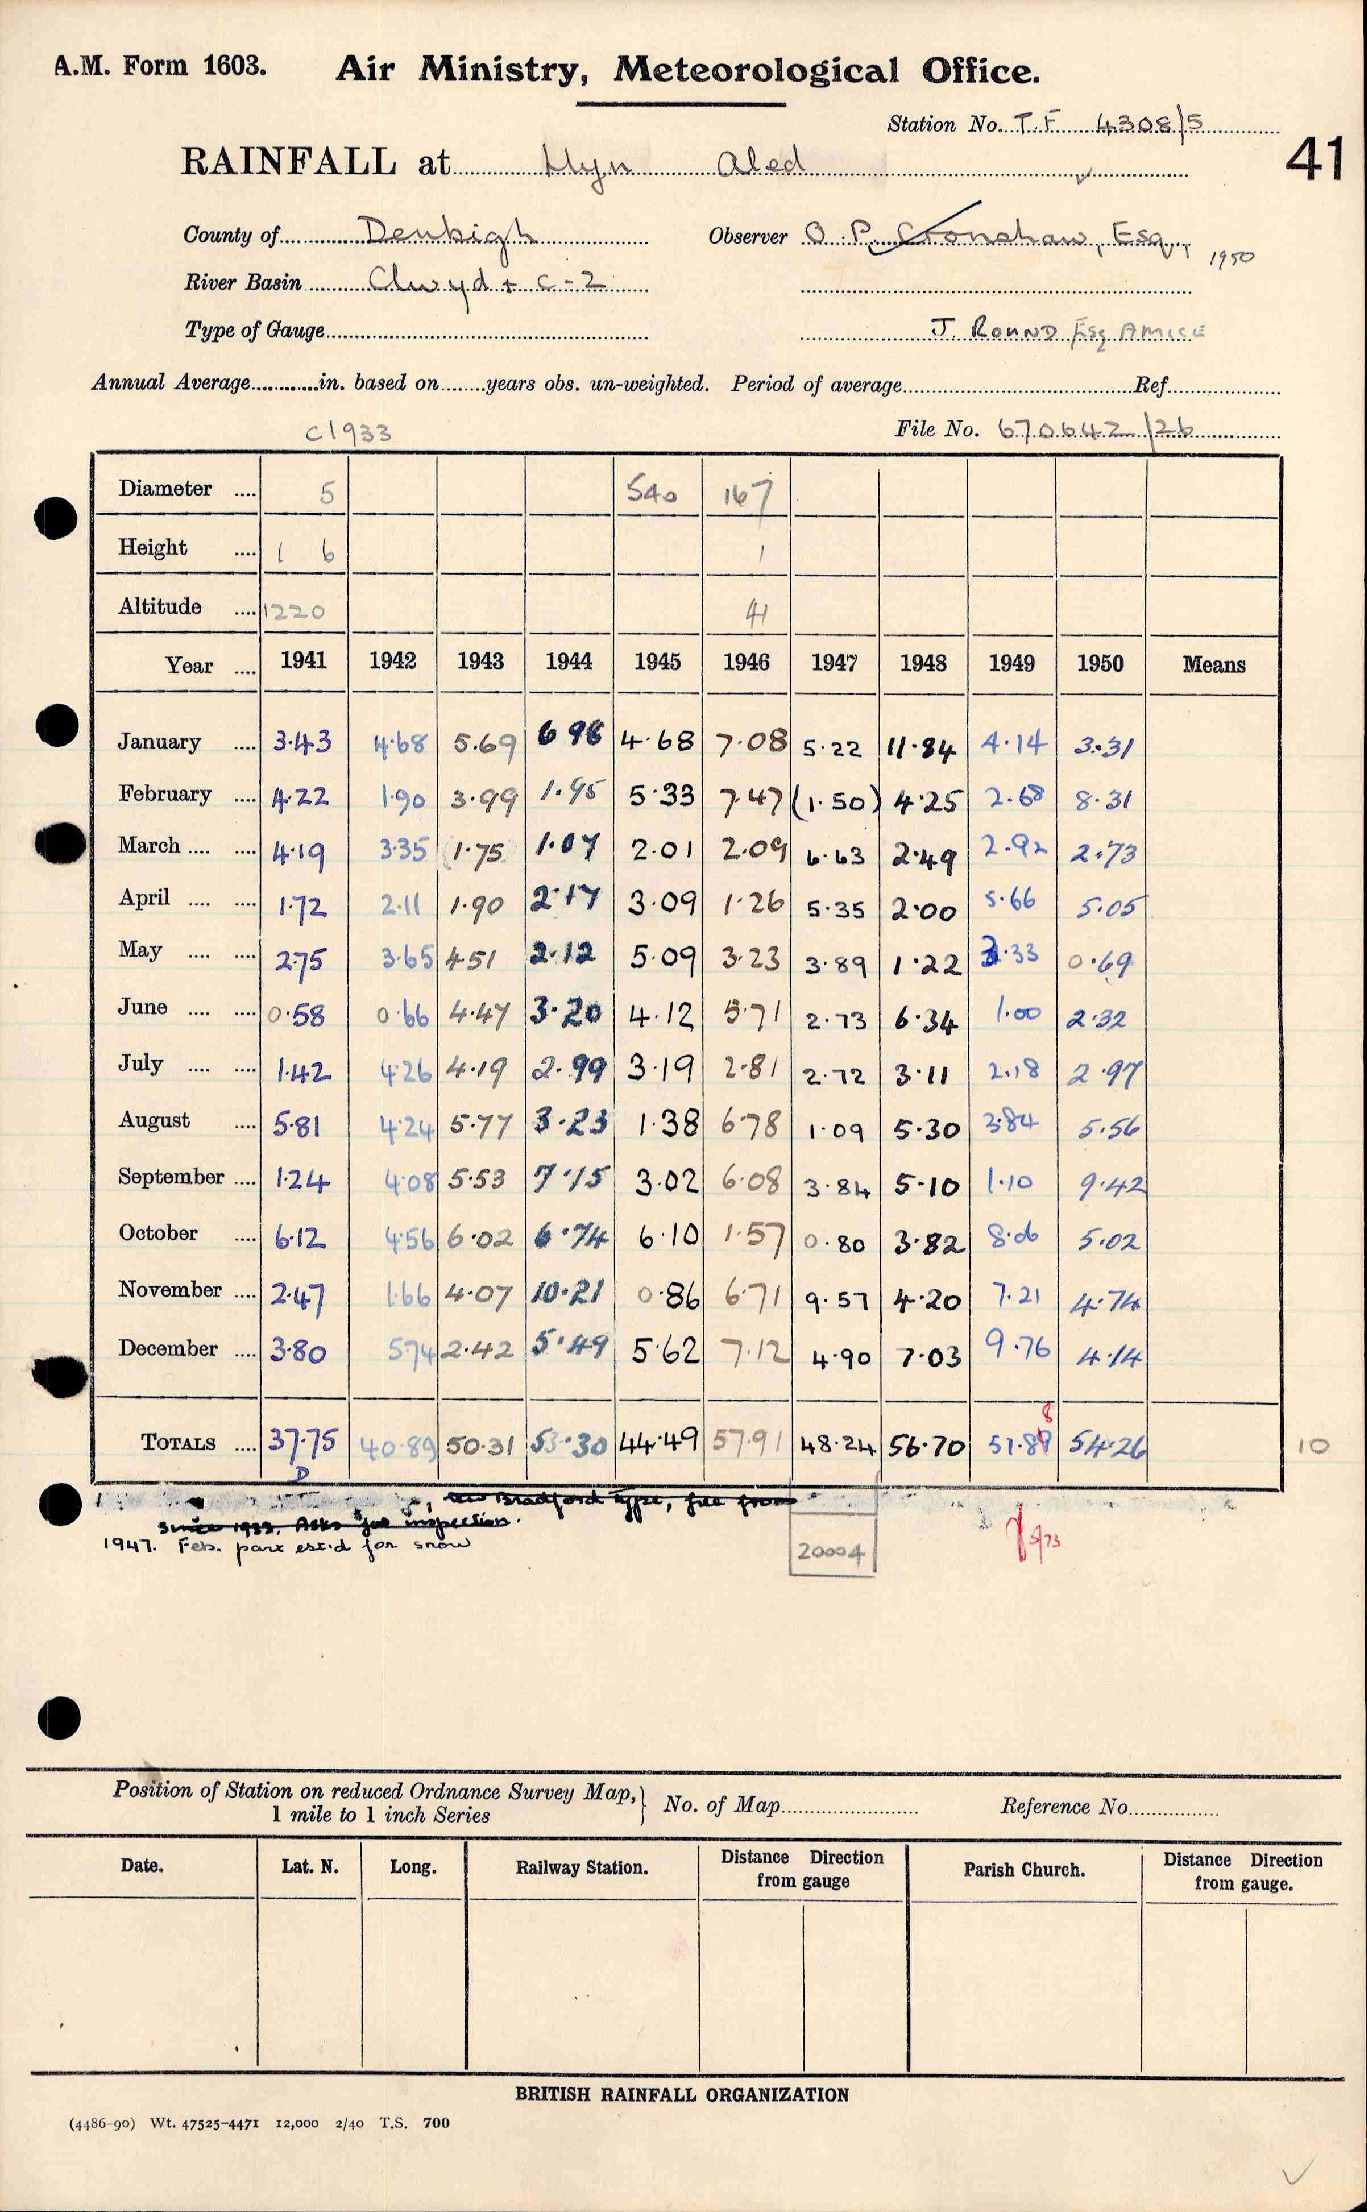 A.M. Form 1603. Air Ministry, Meteorological Office.
Station No. T.F 4308/5
41
RAINFALL at Llyn Aled
County of Denbigh Observer O. P. Cronshaw, Esq., 1950
River Basin Clwyd + C-2
Type of Gauge J. ROUND Esq AMICE
Annual Average in. based on years obs. un-weighted. Period of average Ref
C1933 File No. 670642/26
Diameter .... 5 540 167
Height .... 1 6 1
Altitude .... 1220 41
Year .... 1941 1942 1943 1944 1945 1946 1947 1948 1949 1950 Means
January .... 3.43 4.68 5.69 6.98 4.68 7.08 5.22 11.84 4.14 3.31
February .... 4.22 1.90 3.99 1.95 5.33 7.47 (1.50) 4.25 2.68 8.31
March .... .... 4.19 3.35 1.75 1.07 2.01 2.09 6.63 2.49 2.92 2.73
April .... .... 1.72 2.11 1.90 2.17 3.09 1.26 5.35 2.00 5.66 5.05
May .... .... 2.75 3.65 4.51 2.12 5.09 3.23 3.89 1.22 3.33 0.69
June .... .... 0.58 0.66 4.47 3.20 4.12 5.71 2.73 6.34 1.00 2.32
July .... .... 1.42 4.26 4.19 2.99 3.19 2.81 2.72 3.11 2.18 2.97
August .... 5.81 4.24 5.77 3.23 1.38 6.78 1.09 5.30 3.84 5.56
September .... 1.24 4.08 5.53 7.15 3.02 6.08 3.84 5.10 1.10 9.42
October .... 6.12 4.56 6.02 6.74 6.10 1.57 0.80 3.82 8.06 5.02
November .... 2.47 1.66 4.07 10.21 0.86 6.71 9.57 4.20 7.21 4.74
December .... 3.80 5.74 2.42 5.49 5.62 7.12 4.90 7.03 9.76 4.14
8
TOTALS .... 37.75 40.89 50.31 53.30 44.49 57.91 48.24 56.70 51.89 54.26 10
D
new Bradford type, free from
since 1933. Asks for inspection.
1947. Feb. part est'd for snow
20004
5/73
Position of Station on reduced Ordnance Survey Map, 1 mile to 1 inch Series } No. of Map Reference No.
Date. Lat. N. Long. Railway Station. Distance Direction from gauge Parish Church. Distance Direction from gauge.
BRITISH RAINFALL ORGANIZATION
(4486-90) Wt. 47525-4471 12,000 2/40 T.S. 700